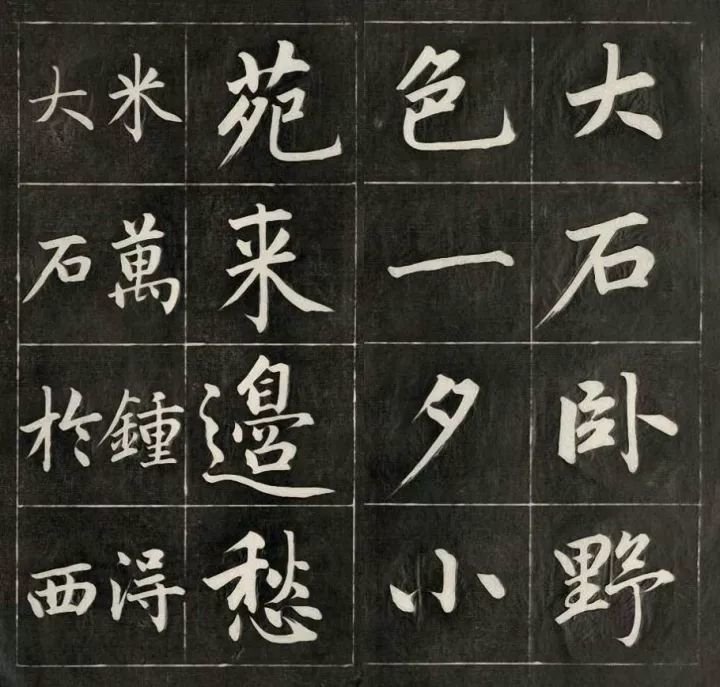 大石卧野
色一夕小
苑来邊愁
米萬鍾淂
大石於西